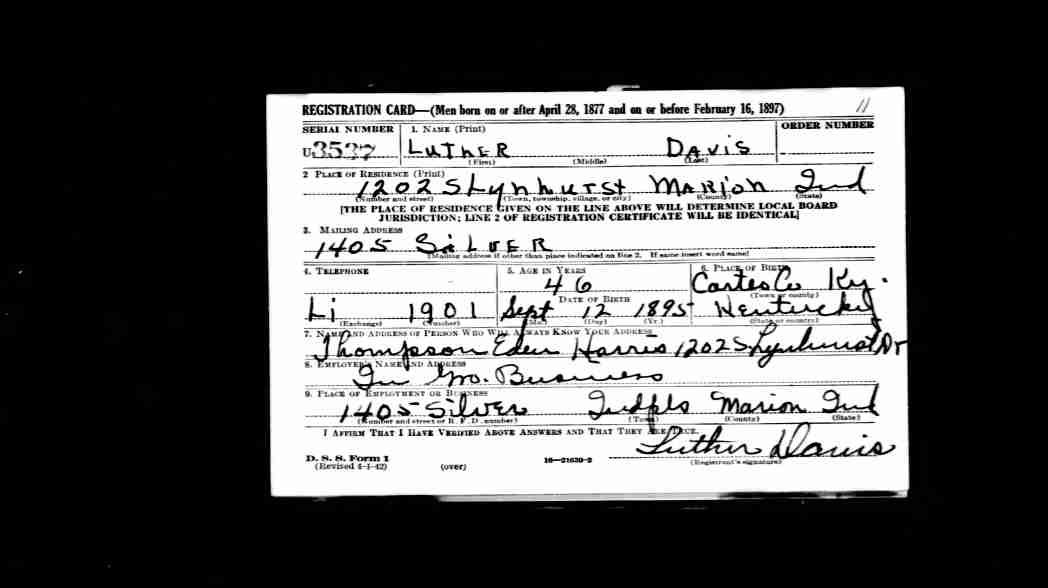 REGISTRATION CARD—(Men born on or after April 28, 1877 and on or before February 16, 1897) 11
SERIAL NUMBER 1. NAME (Print) ORDER NUMBER
U3537 LUTHER DAVIS
(First) (Middle) (Last)
2 PLACE OF RESIDENCE (Print)
1202 S Lynhurst Marion Ind
(Number and street) (Town, township, village, or city) (County) (State)
[THE PLACE OF RESIDENCE GIVEN ON THE LINE ABOVE WILL DETERMINE LOCAL BOARD
JURISDICTION; LINE 2 OF REGISTRATION CERTIFICATE WILL BE IDENTICAL]
3. MAILING ADDRESS
1405 SiLVER
(Mailing address if other than place indicated on line 2. If same insert word same)
4. TELEPHONE 5. AGE IN YEARS 6. PLACE OF BIRTH
46 Carter Co Ky.
DATE OF BIRTH (Town or county)
Li 1901 Sept 12 1895 Kentucky
(Exchange) (Number) (Mo.) (Day) (Yr.) (State or country)
7. NAME AND ADDRESS OF PERSON WHO WILL ALWAYS KNOW YOUR ADDRESS
Thompson Eden Harris 1202 S Lynhurst Dr
8. EMPLOYER'S NAME AND ADDRESS
In Business
9. PLACE OF EMPLOYMENT OR BUSINESS
1405 Silver Indpls Marion Ind
(Number and street or R. F. D. number) (Town) (County) (State)
I AFFIRM THAT I HAVE VERIFIED ABOVE ANSWERS AND THAT THEY ARE TRUE.
Luther Davis
D. S. S. Form 1
(Revised 4-1-42) (over) 16—21630-2 (Registrant's signature)